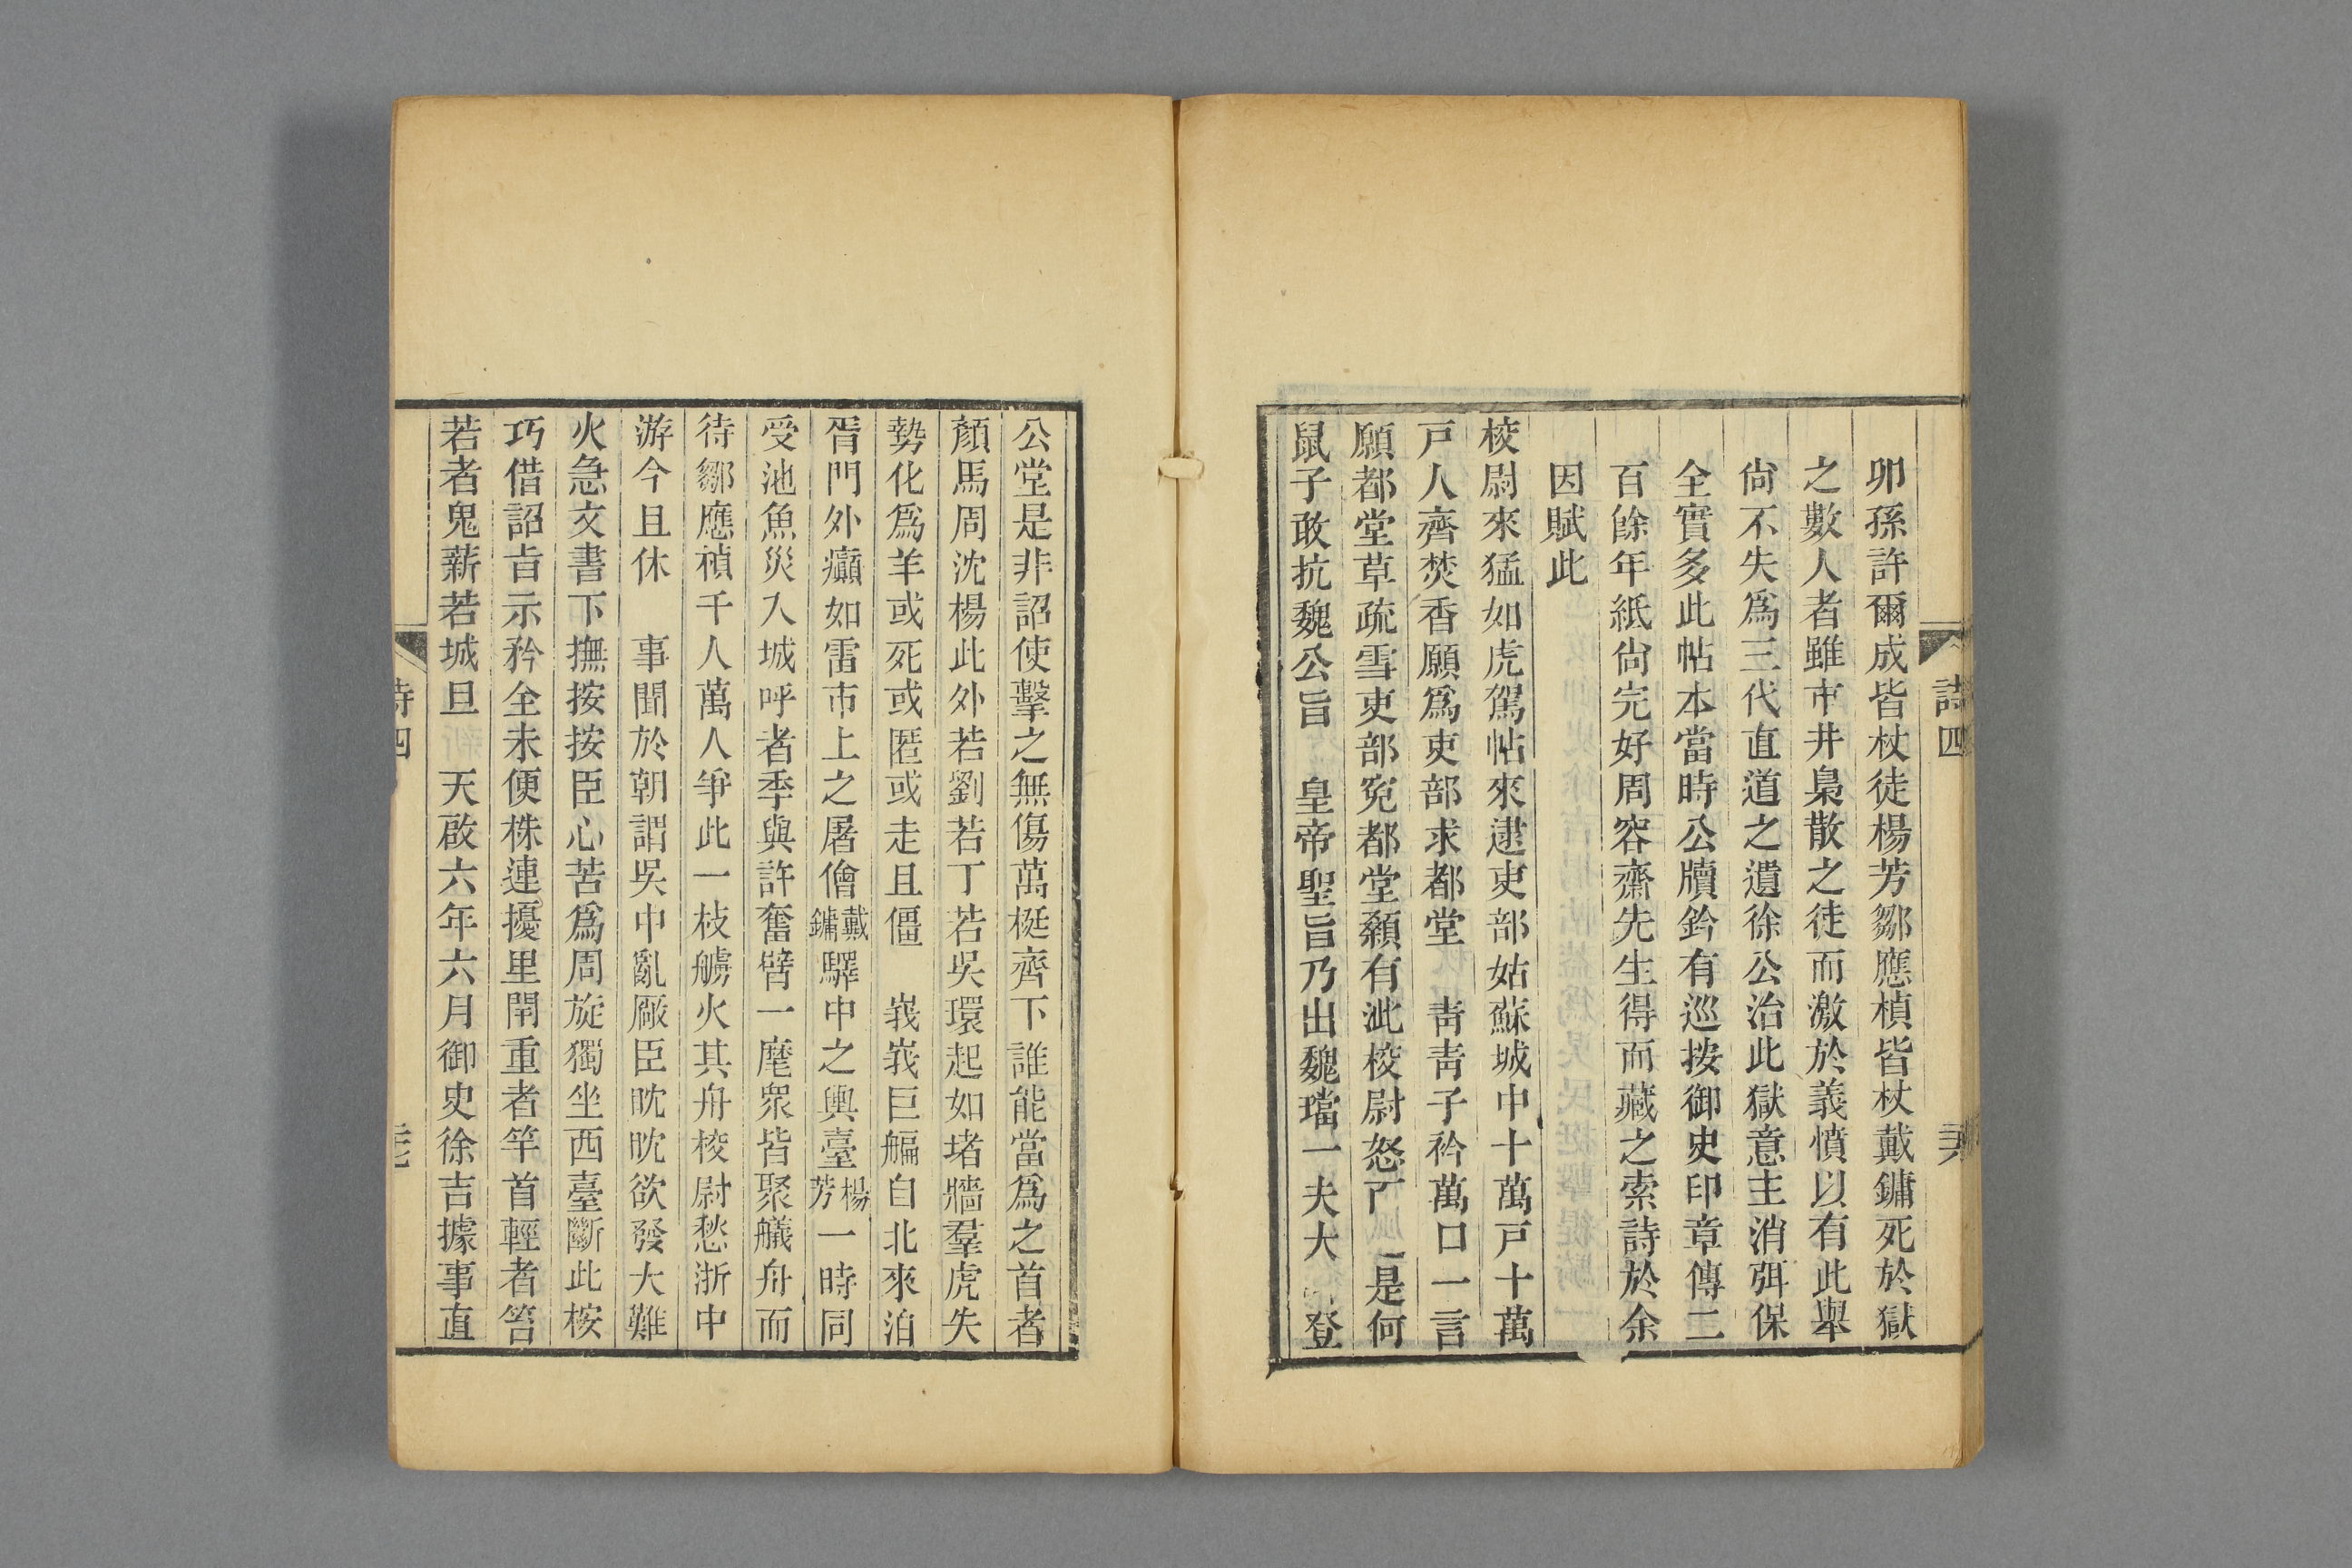 詩四
卯孫許爾成皆杖徒楊芳鄒應楨皆杖戴鏞死於獄
之數人者雖市井梟散之徒而激於義憤以有此舉
尙不失爲三代直道之遺徐公治此獄意主消弭保
全實多此帖本當時公牘鈐有巡按御史印章傳二
百餘年紙尙完好周容齋先生得而藏之索詩於余
因賦此
校尉來猛如虎駕帖來逮吏部姑蘇城中十萬戸十萬
戸人齊焚香願爲吏部求都堂 靑靑子衿萬口一言
願都堂草疏雪吏部寃都堂顙有泚校尉怒 是何
鼠子敢抗魏公旨 皇帝聖旨乃出魏璫一夫大 登
公堂是非詔使擊之無傷萬梃齊下誰能當爲之首者
顏馬周沈楊此外若劉若丁若吳環起如堵牆羣虎失
勢化爲羊或死或匿或走且僵 峩峩巨艑自北來泊
胥門外癲如雷市上之屠儈戴鏞驛中之輿臺楊芳一時同
受池魚災入城呼者季與許奮臂一麾衆皆聚艤舟而
待鄒應禎千人萬人爭此一枝艣火其舟校尉愁浙中
游今且休 事聞於朝謂吳中亂厰臣眈眈欲發大難
火急文書下撫按按臣心苦爲周旋獨坐西臺斷此桉
巧借詔旨示矜全未便株連擾里閈重者竿首輕者笞
若者鬼薪若城旦 天啟六年六月御史徐吉據事直
詩四